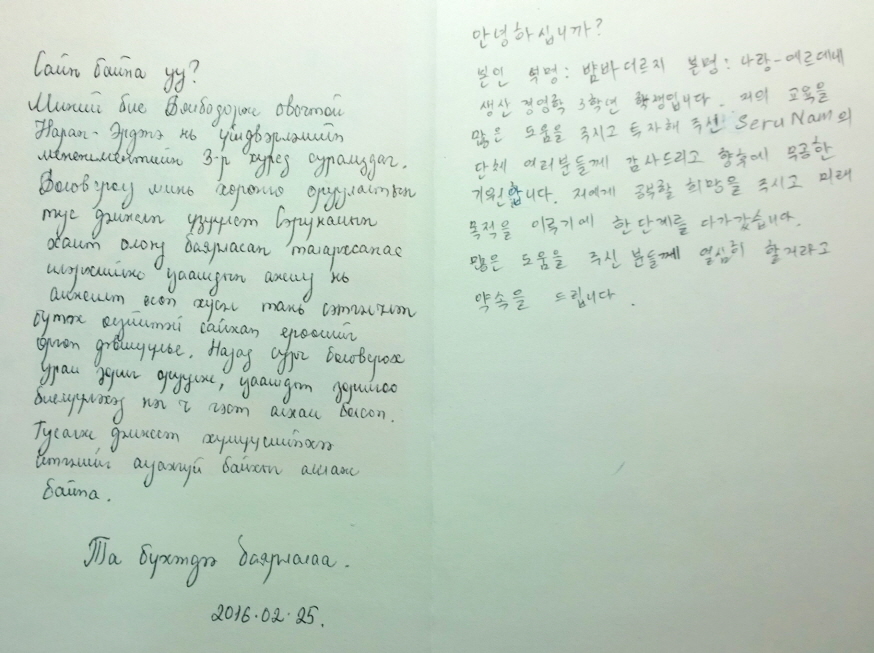 Сайн байна уу?
Миний бие Бямбадорж овогтой
Наран-Эрдэнэ нь үйлдвэрлэлийн
менежментийн 3-р курсд суралцдаг.
Боловсрол минь хөрөнгө оруулалтын
тус дэмжлэг үзүүлсэн Сэрүнамын
хамт олонд баярласан талархсанаа
илэрхийлже цаашдын ажил нь
амжилт өсөн
бүтэх өлзийтэй сайхан ерөөлийг
өргөн дэвшүүлье. Надад сурч боловсрох
урам зориг оруулж, цаашдын зорилгоо
биелүүлэхэд нэг ч гэсэн алхам болсон.
Тусалж дэмжсэн хүмүүсийнхээ
итгэлийг алдахгүй байхыг амлаж
байна.
Та бүхэндээ баярлалаа.
2016.02.25.
안녕하십니까?
본인 성명: 뱜바더르지 본명: 나랑-에르데네
생산 경영학 3학년 학생입니다. 저의 교육을
많은 도움을 주시고 투자해 주신 SeruNam의
단체 여러분들께 감사드리고 향후에 무궁한
기원합니다. 저에게 공부할 희망을 주시고 미래
목적을 이루기에 한단계를 다가갔습니다.
많은 도움을 주신 분들께 열심히 할거라고
약속을 드립니다.